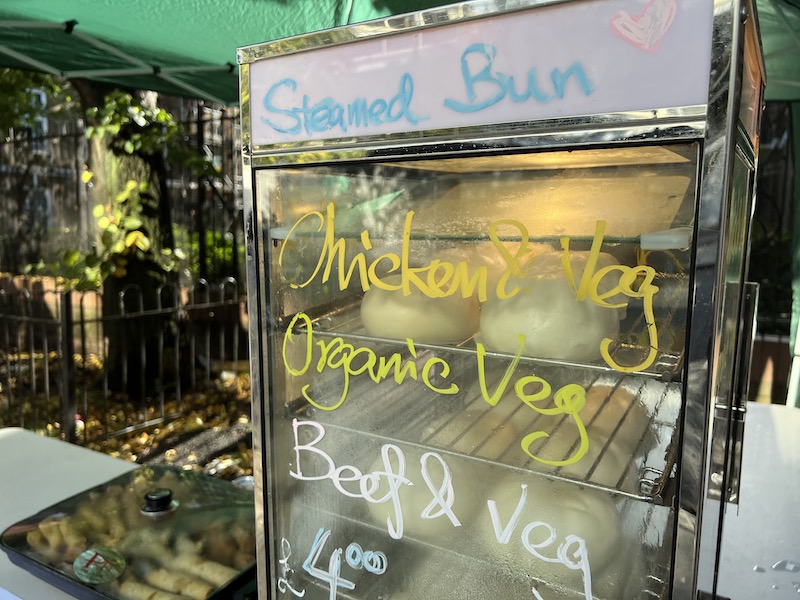 Steamed Bun
Chicken & Veg
Organic Veg
Beef & Veg
4.00